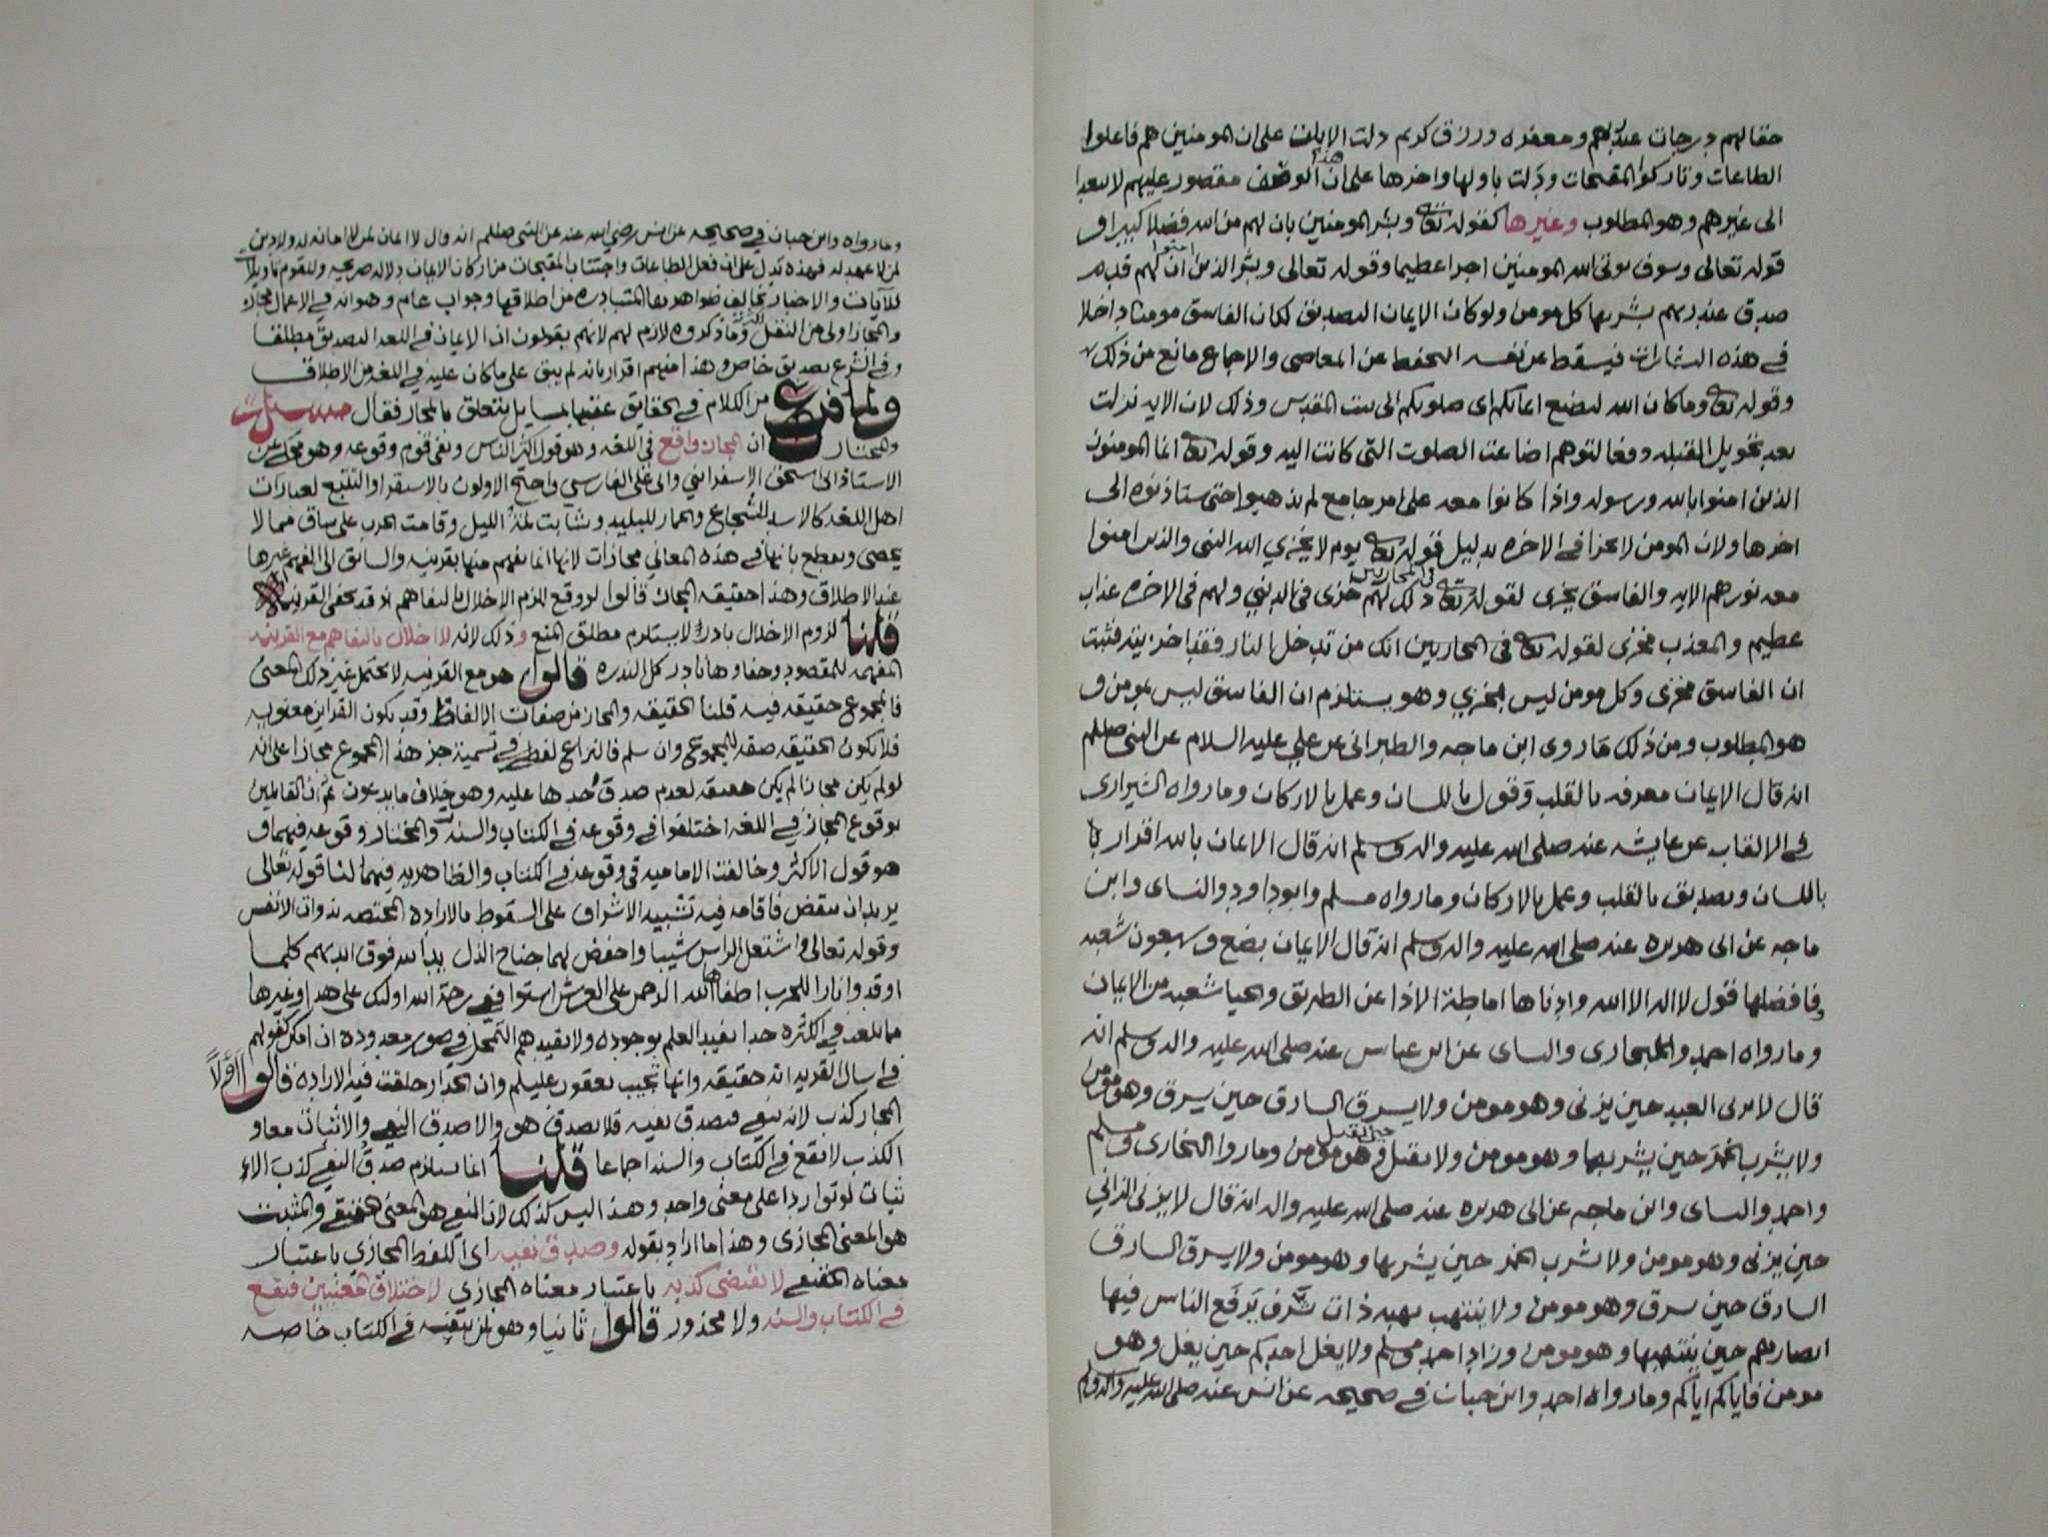 حقا لهم درجات عند ربهم ومغفره ورزق كريم دلت الايات على ان المومنين هم فاعلوا
الطاعات وتاركوا المقبحات ودلت باولها واخرها على ان هذا الوصف مقصور عليهم لا يتعدا
الى غيرهم وهو المطلوب وغيرها كقوله تعالى وبشر المومنين بان لهم من الله فضلا كبيرا و
قوله تعالى وسوف يوتى الله المومنين اجرا عظيما وقوله تعالى وبشر الذين امنوا ان لهم قدم
صدق عند ربهم بشر بها كل مومن ولو كان الايمان التصديق لكان الفاسق مومنا داخلا
في هذه البشارات فيسقط عن نفسه التحفظ عن المعاصى والاجماع مانع من ذلك
وقوله تعالى وما كان الله ليضيع ايمانكم اى صلوتكم الى بيت المقدس وذلك لان الايه نزلت
بعد تحويل القبله دفعا لتوهم اضاعت الصلوت التى كانت اليه وقوله تعالى انما المومنون
الذين امنوا بالله ورسوله واذا كانوا معه على امر جامع لم يذهبوا حتى ستاذنوه الى
اخرها ولان المومن لا يخزا في الاخره بدليل قوله تعالى يوم لا يخزي الله النبى والذين امنوا
معه نورهم الايه والفاسق يخزى لقوله تعالى في المحاربين ذلك لهم خزى فى الدنيى ولهم فى الاخره عذاب
عظيم والمعذب مخزى لقوله تعالى فى المحاربين انك من تدخل النار فقد اخزيته فثبت
ان الفاسق مخزى وكل مومن ليس بمخزي وهو يستلزم ان الفاسق ليس بمومن و
هو المطلوب ومن ذلك ما روى ابن ماجه والطبرانى عن علي عليه السلام عن النبى صللم
انه قال الايمان معرفه بالقلب وقول باللسان وعمل بالاركان وما رواه الشيرازى
في الالقاب عن عايشه عنه صلى الله عليه واله وسلم انه قال الايمان بالله اقرار با
باللسان وتصديق بالقلب وعمل بالاركان وما رواه مسلم وابو داود والنساى وابن
ماجه عن ابى هريره عنه صلى الله عليه واله وسلم انه قال الايمان بضع وسبعون شعبه
فافضلها قول لا اله الا الله وادناها اماطة الاذا عن الطريق والحيا شعبه من الايمان
وما رواه احمد والبخارى والنساى عن ابن عباس عنه صلى الله عليه واله وسلم انه
قال لا يزنى العبد حين يزنى وهو مومن ولا يسرق السارق حين يسرق وهو مومن
ولا يشرب الخمر حين يشربها وهو مومن ولا يقتل حين يقتل وهو مومن وما روا البخارى ومسلم
واحمد والنساى وابن ماجه عن ابى هريره عنه صلى الله عليه واله انه قال لا يزنى الزاني
حين يزنى وهو مومن ولا يشرب الخمر حين يشربها وهو مومن ولا يسرق السارق
السارق حين يسرق وهو مومن ولا ينتهب نهبه ذات شرف يرفع الناس فيها
ابصارهم حين ينتهبها وهو مومن وزاد احمد ومسلم ولا يغل احدكم حين يغل وهو
مومن فاياكم اياكم وما رواه احمد وابن حبان في صحيحه عن انس عنه صلى الله عليه واله وسلم
وما رواه وابن حبان في صحيحه عن انس رضي الله عنه عن النبى صللم انه قال لا ايمان لمن لا امانه له ولا دين
لمن لا عهد له فهذه تدل على ان فعل الطاعات واجتناب المقبحات من اركان الايمان دلاله صريحه وللقوم تاويلا
للآيات والاخبار تخالف ظواهرها المتبادره من اطلاقها وجواب عام وهو انه في الاعمال مجاز
والمجاز اولى من النقل وما ذكروه لازم لهم لانهم يقولون ان الايمان في اللغه التصديق مطلقا
وفي الشرع تصديق خاص وهذا منهم اقرار بانه لم يبق على ما كان عليه في اللغه من الاطلاق
ولما فرغ من الكلام في الحقايق عقبها بمسايل يتعلق بالمجاز فقال مسئلة
والمختار ان المجاز واقع في اللغه وهو قول اكثر الناس ونفى قوم وقوعه وهو محكي عن
الاستاذ ابى اسحق الاسفرائني وابى على الفارسي واحتج الاولون بالاستقرا والتتبع لعبارات
اهل اللغه كالاسد للشجاع والحمار للبليد وشابت لمة الليل وقامت الحرب على ساق مما لا
يحصى ونقطع بانها في هذه المعاني مجازات لانها انما يفهم منها بقرينه والسابق الى الفهم غيرها
عند الاطلاق وهذا حقيقه المجاز قالوا لو وقع لزم الاخلال بالتفاهم اذ قد تخفى القرينه
قلنا لزوم الاخلال نادرا لا يستلزم مطلق المنع وذلك لانه لا اخلال بالتفاهم مع القرينه
المفهمه للمقصود وخفاوها نادر كل الندره قالوا هو مع القرينه لا يحتمل غير ذلك المعنى
فالمجموع حقيقه فيه قلنا الحقيقه والمجاز من صفات الالفاظ وقد يكون القراين معنويه
فلا تكون الحقيقه صفه للمجموع وان سلم فالنزاع لفظي في تسمية جز هذا المجموع مجازا على انه
لو لم يكن مجازا لم يكن حقيقه لعدم صدق حدها عليه وهو خلاف ما يدعون ثم ان القايلين
بوقوع المجاز في اللغه اختلفوا في وقوعه في الكتاب والسنه والمختار وقوعه فيهما و
هو قول الاكثر وخالفت الاماميه في وقوعه في الكتاب والظاهريه فيهما لنا قوله تعالى
يريد ان ينقض فاقامه فيه تشبيه الاشراف على السقوط بالاراده المختصه بذوات الانفس
وقوله تعالى واشتعل الراس شيبا واخفض لهما جناح الذل يد الله فوق ايديهم كلما
اوقدوا نارا للحرب اطفاها الله الرحمن على العرش استوا ففي رحمة الله اولئك على هدا وغيرها
مما بلغ في الكثره حدا يفيد العلم بوجوده ولا يفيدهم التمحل في صور معدوده ان امكن كقولهم
في اسال القريه انه حقيقه وانها تجيب يعقوب عليلم وان الجدار خلقت فيه الاراده قالوا اولا
المجاز كذب لانه ينفى فيصدق نفيه فلا يصدق هو والا صدق النفي والاثبات معا و
الكذب لا يقع في الكتاب والسنه اجماعا قلنا انما يستلزم صدق النفي كذب الا
ثبات لو تواردا على معنى واحد وهذا ليس كذلك لان المنفي هو المعنى الحقيقي والمثبت
هو المعنى المجازى وهذا ما اراد بقوله وصدق نفيه اى اللفظ المجازي باعتبار
معناه الحقيقي لا يقتضى كذبه باعتبار معناه المجازي لاختلاف المعنيين فيقع
في الكتاب والسنه ولا محذور قالوا ثانيا وهو لمن ينفيه في الكتاب خاصه